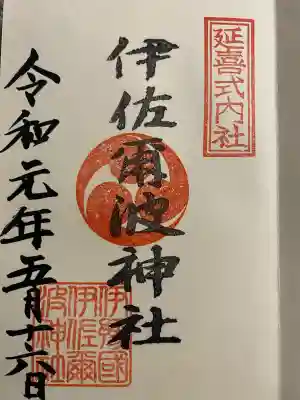 延喜式内社
伊佐爾波神社
令和元年五月十六日
伊豫國
伊佐爾
波神社